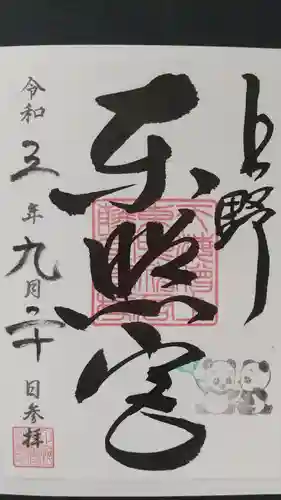 上野
東照宮
令和五年九月二十日参拝